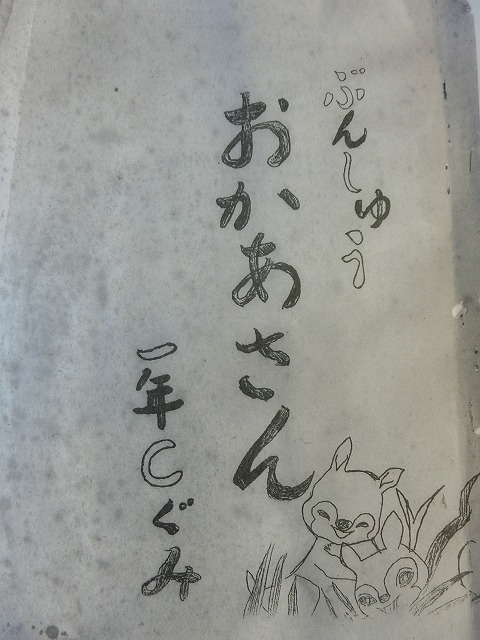 ぶんしゅう
おかあさん
一年Cぐみ